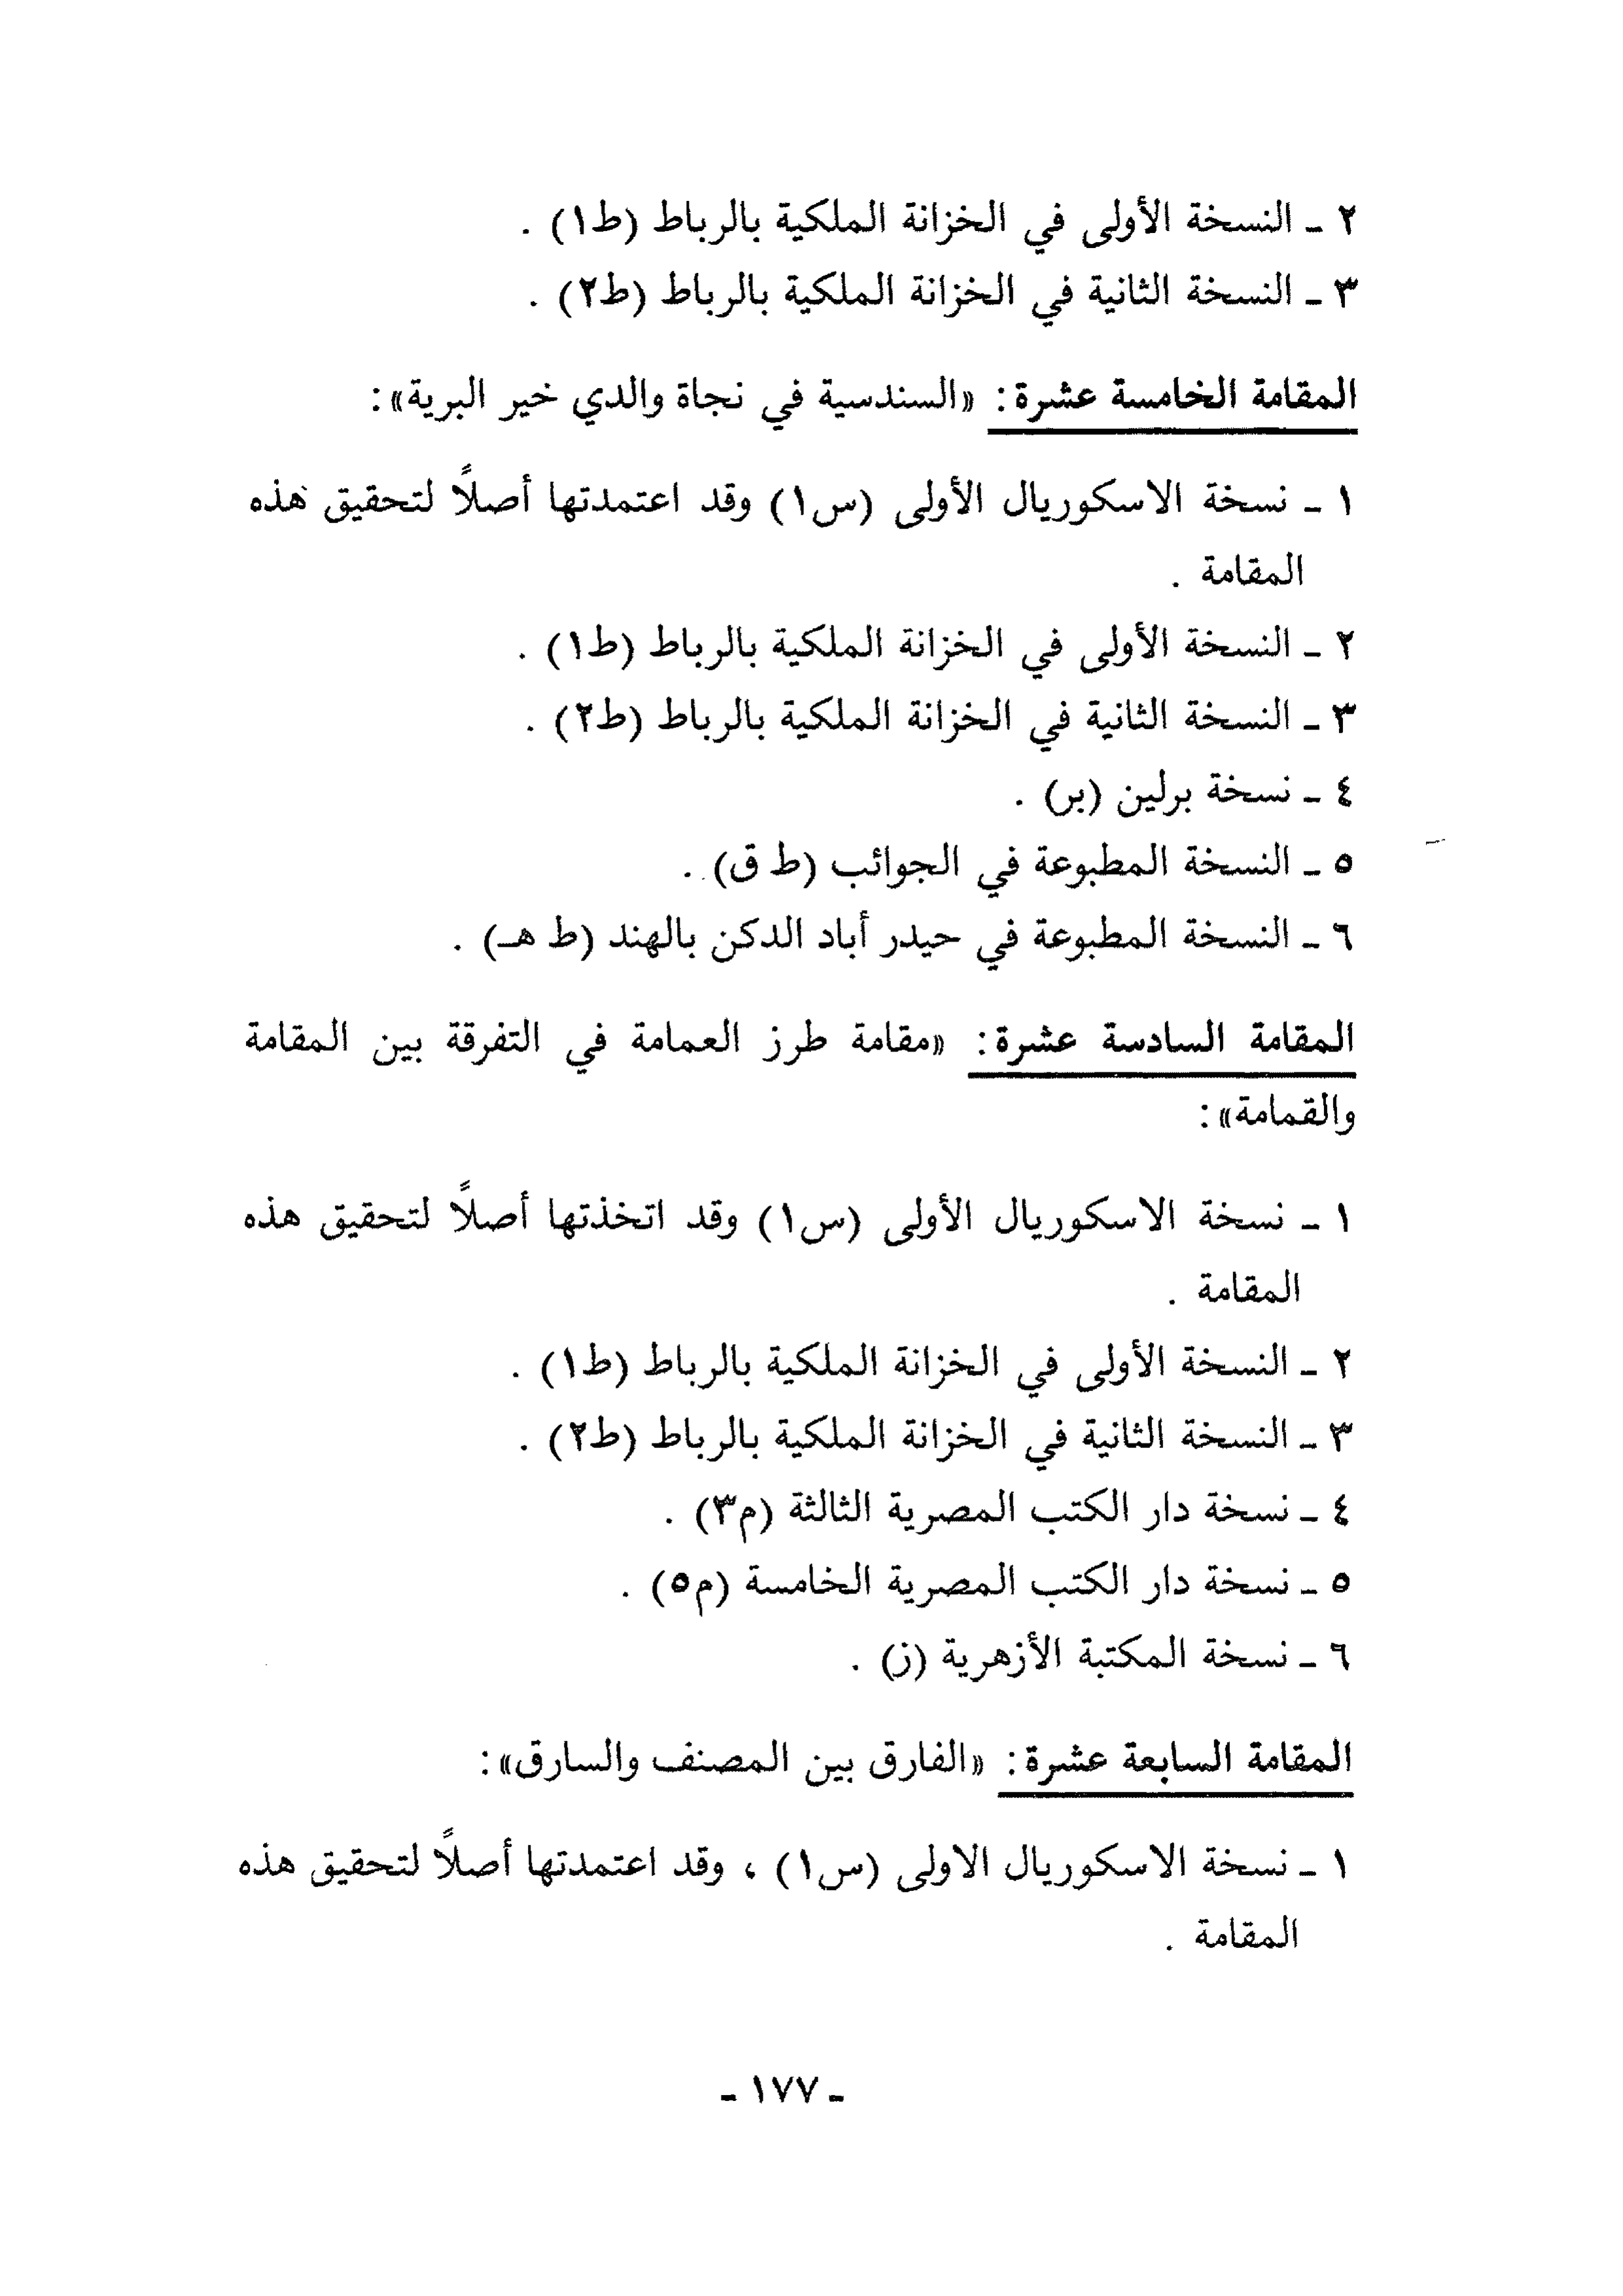 ٢ ـ النسخة الأولى في الخزانة الملكية بالرباط (ط١) .
٣ ـ النسخة الثانية في الخزانة الملكية بالرباط (ط٢) .
المقامة الخامسة عشرة : «السندسية في نجاة والدي خير البرية» :
١ ـ نسخة الاسكوريال الأولى (س١) وقد اعتمدتها أصلاً لتحقيق هذه
المقامة .
٢ ـ النسخة الأولى في الخزانة الملكية بالرباط (ط١) .
٣ ـ النسخة الثانية في الخزانة الملكية بالرباط (ط٢) .
٤ ـ نسخة برلين (بر) .
٥ ـ النسخة المطبوعة في الجوائب (ط ق) .
٦ ـ النسخة المطبوعة في حيدر أباد الدكن بالهند (ط هـ) .
المقامة السادسة عشرة : «مقامة طرز العمامة في التفرقة بين المقامة
والقمامة» :
١ ـ نسخة الاسكوريال الأولى (س١) وقد اتخذتها أصلاً لتحقيق هذه
المقامة .
٢ ـ النسخة الأولى في الخزانة الملكية بالرباط (ط١) .
٣ ـ النسخة الثانية في الخزانة الملكية بالرباط (ط٢) .
٤ ـ نسخة دار الكتب المصرية الثالثة (م٣) .
٥ ـ نسخة دار الكتب المصرية الخامسة (م٥) .
٦ ـ نسخة المكتبة الأزهرية (ز) .
المقامة السابعة عشرة : «الفارق بين المصنف والسارق» :
١ ـ نسخة الاسكوريال الاولى (س١) ، وقد اعتمدتها أصلاً لتحقيق هذه
المقامة .
ـ ١٧٧ ـ